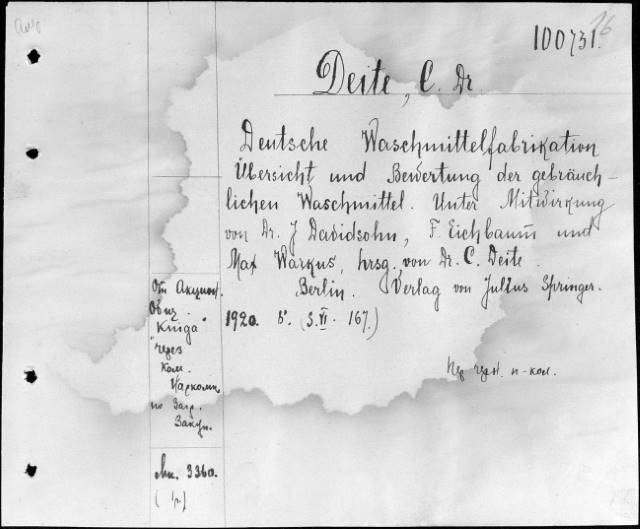 100731.
Deite, C. Dr.
Deutsche Waschmittelfabrikation
Übersicht und Bewertung der gebräuch-
lichen Waschmittel. Unter Mitwirkung
von Dr. J Davidsohn, F. Eichbaum und
Max Warkus, hrsg. von Dr. C. Deite.
Berlin. Verlag von Julius Springer.
1920. 8°. (S. VI. 167.)
От Акцион.
Общ.
"Kniga"
через
Ком.
Наркомин.
по Загр.
Закуп.
336a.